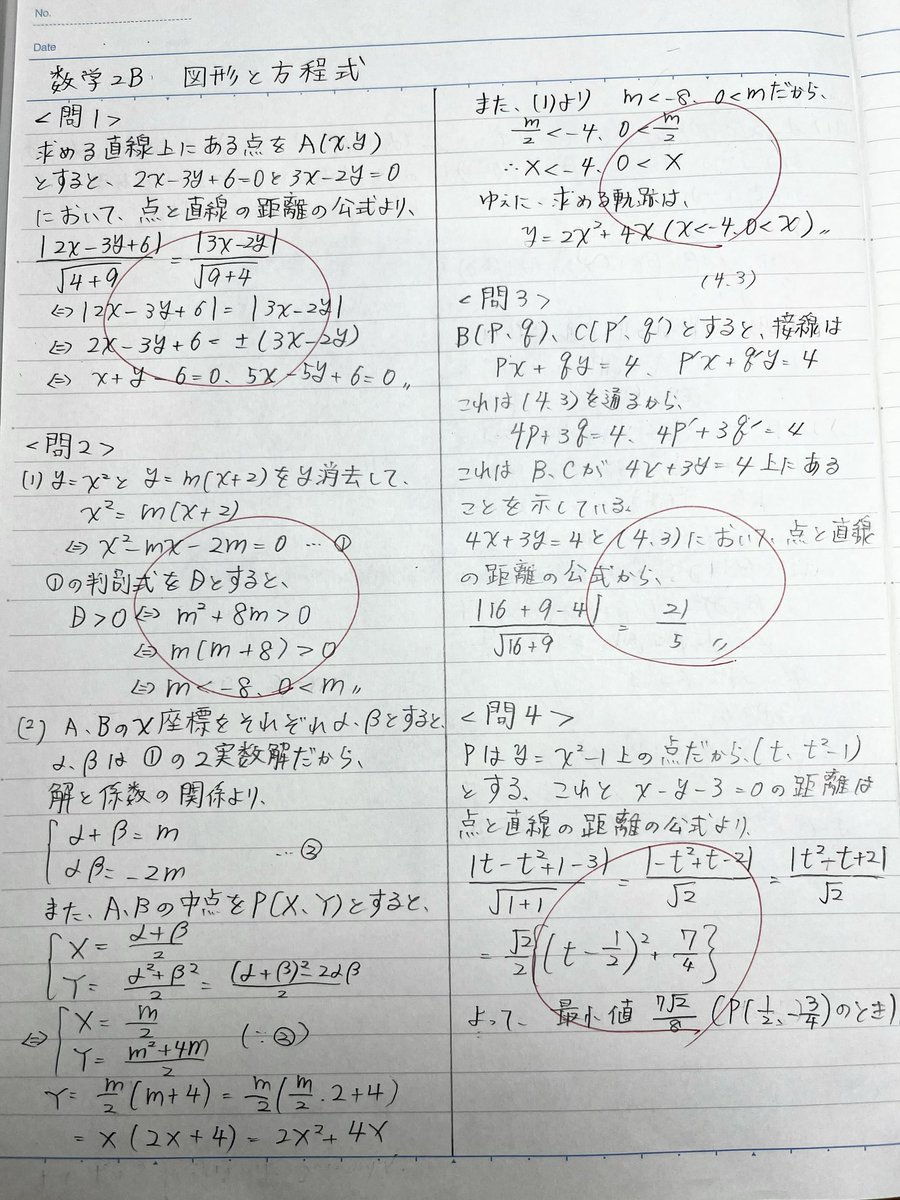 No.
Date
数学2B 図形と方程式
<問1>
求める直線上にある点をA(x.y)
とすると、2x-3y+6=0と3x-2y=0
において、点と直線の距離の公式より、
|2x-3y+6|/√4+9 = |3x-2y|/√9+4
⇔ |2x-3y+6| = |3x-2y|
⇔ 2x-3y+6 = ±(3x-2y)
⇔ x+y-6=0、5x-5y+6=0〃
<問2>
(1) y=x²と y=m(x+2)をy消去して、
x²=m(x+2)
⇔ x²-mx-2m=0 …①
①の判別式をDとすると、
D>0 ⇔ m²+8m>0
⇔ m(m+8)>0
⇔ m<-8、0<m〃
(2) A、Bのx座標をそれぞれα、βとすると、
α、βは①の2実数解だから、
解と係数の関係より、
{ α+β=m
αβ=-2m …②
また、A、Bの中点をP(X、Y)とすると、
{ X= α+β/2
Y= α²+β²/2 = (α+β)²-2αβ/2
⇔ { X= m/2
Y= m²+4m/2 (∵②)
Y= m/2(m+4) = m/2(m/2・2+4)
= X(2X+4) = 2X²+4X
また、(1)より m<-8、0<mだから、
m/2<-4、0<m/2
∴X<-4、0<X
ゆえに、求める軌跡は、
y=2x²+4x(x<-4、0<x)〃
(4.3)
<問3>
B(P、q)、C(P'、q')とすると、接線は
Px+qy=4、P'x+q'y=4
これは(4.3)を通るから、
4P+3q=4、4P'+3q'=4
これはB、Cが 4x+3y=4上にある
ことを示している。
4x+3y=4と(4.3)において、点と直線
の距離の公式から、
|16+9-4|/√16+9 = 21/5 〃
<問4>
Pはy=x²-1上の点だから、(t、t²-1)
とする、これと x-y-3=0の距離は
点と直線の距離の公式より、
|t-t²+1-3|/√1+1 = |-t²+t-2|/√2 = |t²-t+2|/√2
= √2/2{(t-1/2)²+7/4}
よって、最小値 7√2/8 (P(1/2、-3/4)のとき)